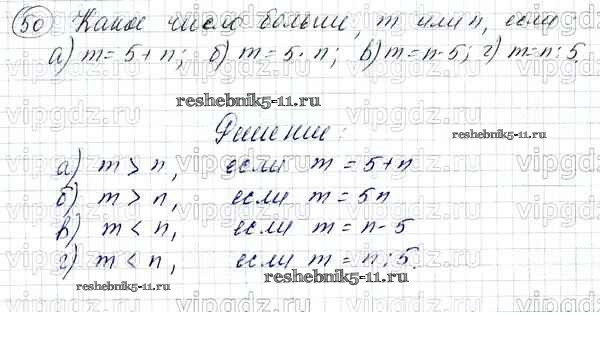 50 Какое число больше, m или n, если
а) m = 5 + n; б) m = 5 · n; в) m = n - 5; г) m = n : 5.
reshebnik5-11.ru
Решение:
reshebnik5-11.ru
а) m > n, если m = 5 + n
б) m > n, если m = 5n
в) m < n, если m = n - 5
г) m < n, если m = n : 5.
reshebnik5-11.ru
reshebnik5-11.ru